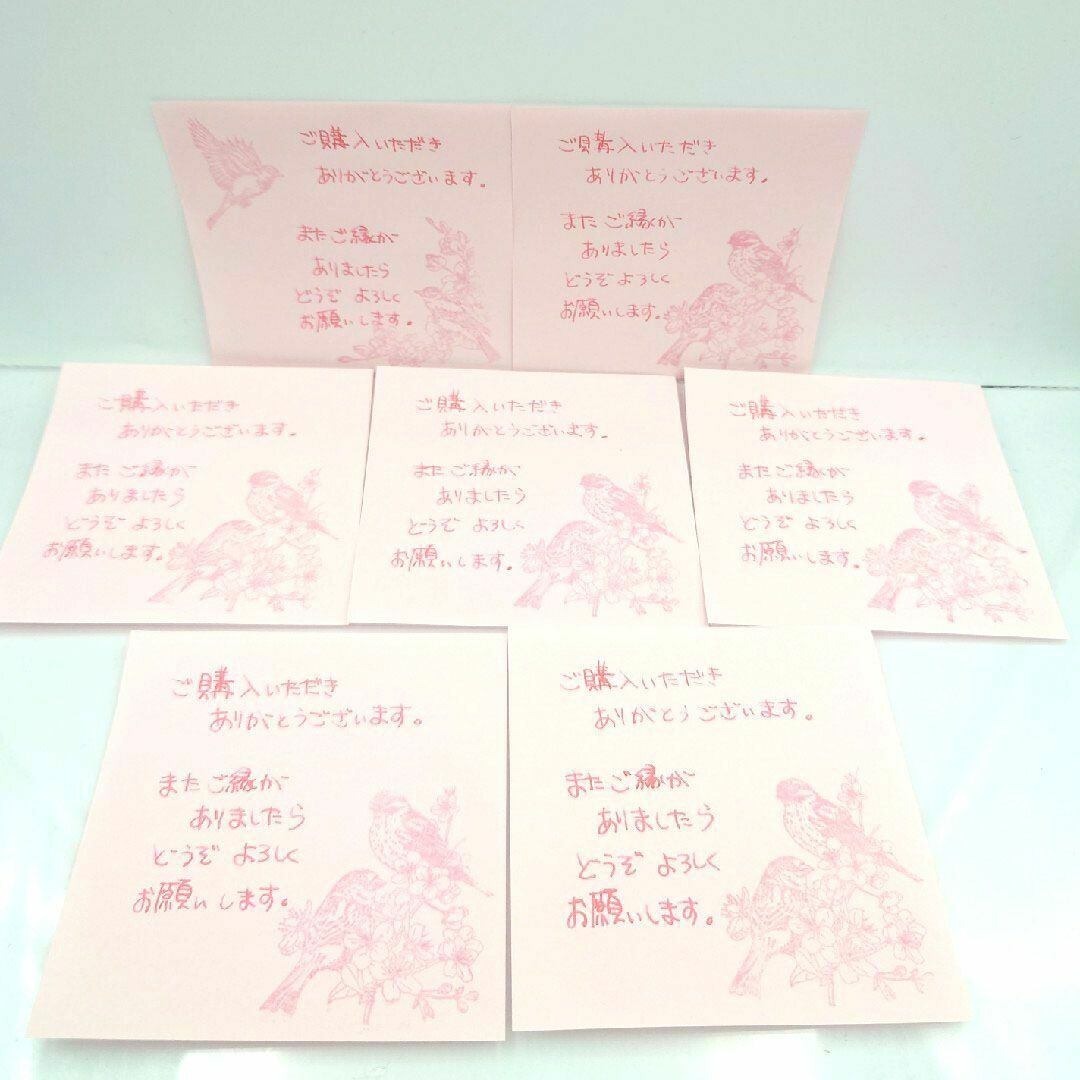 ご購入いただき
ありがとうございます。
またご縁が
ありましたら
どうぞ よろしく
お願いします。
ご購入いただき
ありがとうございます。
またご縁が
ありましたら
どうぞ よろしく
お願いします。
ご購入いただき
ありがとうございます。
またご縁が
ありましたら
どうぞ よろしく
お願いします。
ご購入いただき
ありがとうございます。
またご縁が
ありましたら
どうぞ よろしく
お願いします。
ご購入いただき
ありがとうございます。
またご縁が
ありましたら
どうぞ よろしく
お願いします。
ご購入いただき
ありがとうございます。
またご縁が
ありましたら
どうぞ よろしく
お願いします。
ご購入いただき
ありがとうございます。
またご縁が
ありましたら
どうぞ よろしく
お願いします。